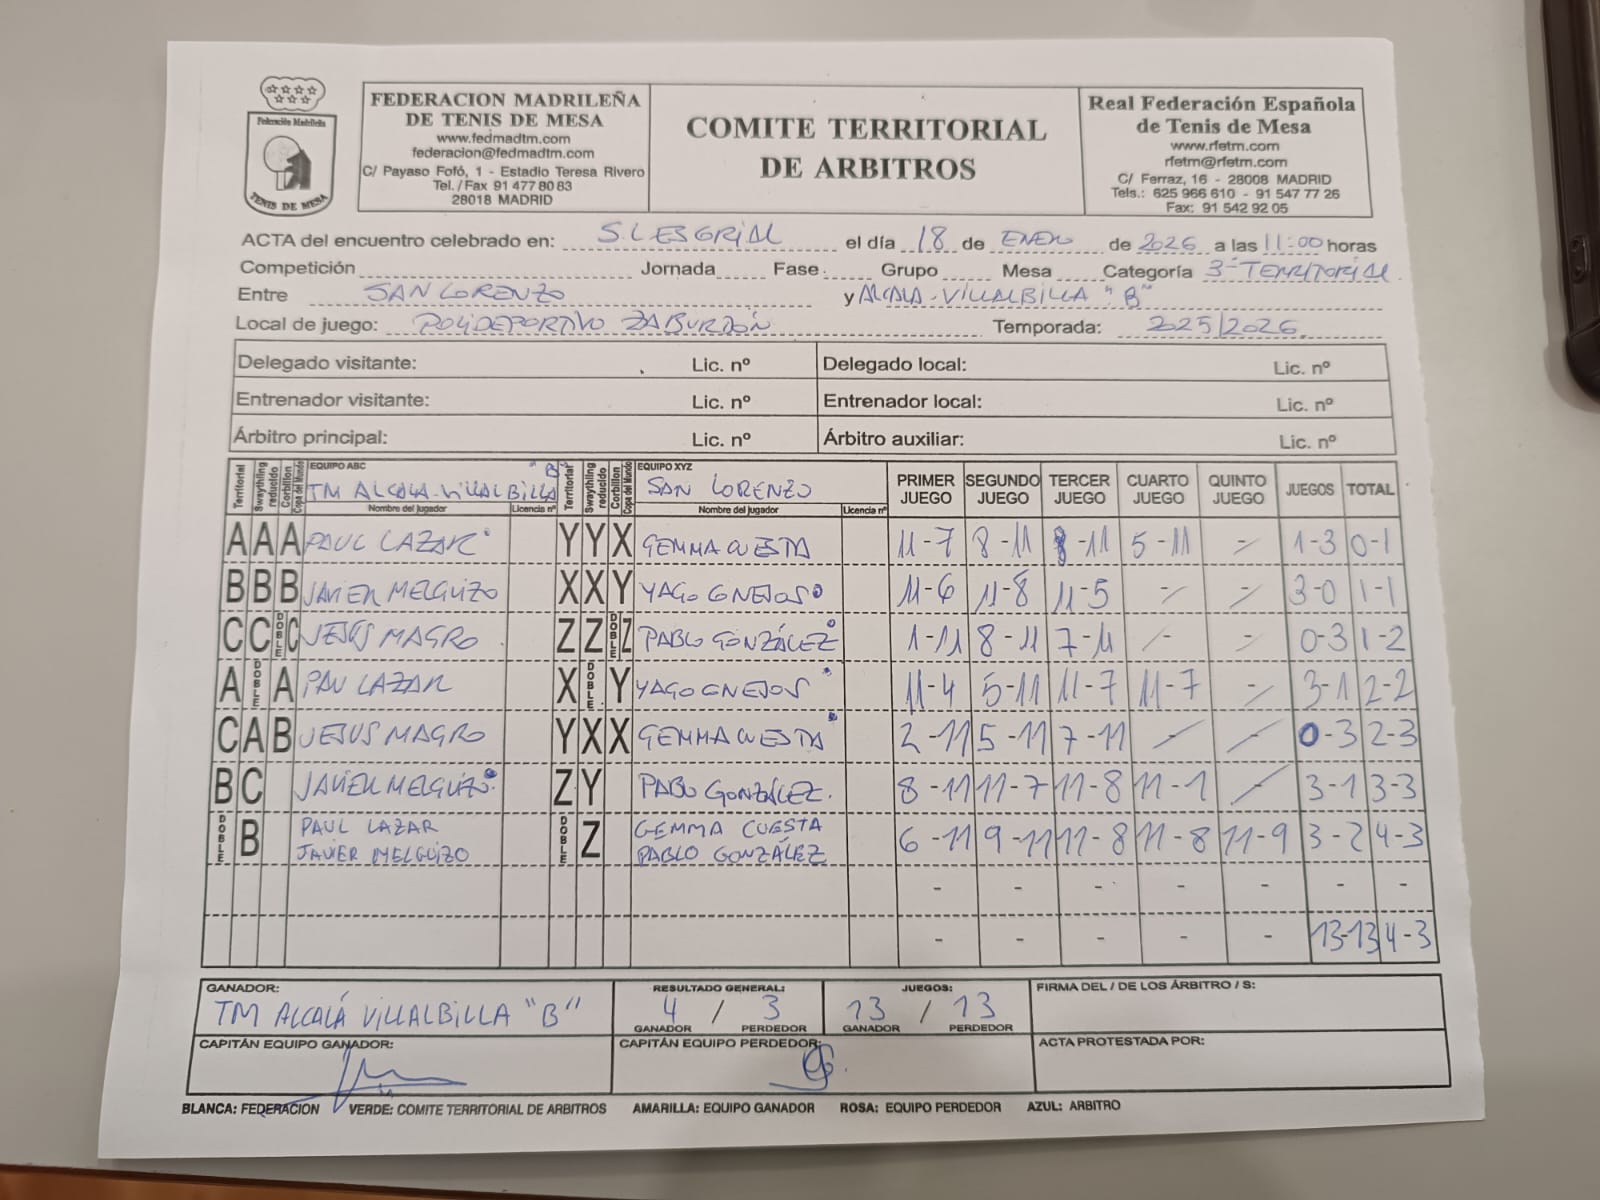 Federación Madrileña
TENIS DE MESA
FEDERACION MADRILEÑA
DE TENIS DE MESA
www.fedmadtm.com
federacion@fedmadtm.com
C/ Payaso Fofó, 1 - Estadio Teresa Rivero
Tel./Fax 91 477 80 83
28018 MADRID
COMITE TERRITORIAL
DE ARBITROS
Real Federación Española
de Tenis de Mesa
www.rfetm.com
rfetm@rfetm.com
C/ Ferraz, 16 - 28008 MADRID
Tels.: 625 966 610 - 91 547 77 26
Fax: 91 542 92 05
ACTA del encuentro celebrado en: S.L ESCRIAL el día 18 de ENERO de 2026 a las 11:00 horas
Competición Jornada Fase Grupo Mesa Categoría 3ª TERRITORIAL
Entre SAN LORENZO y ALCALA-VILLALBILLA "B"
Local de juego: POLIDEPORTIVO ZABURDÓN Temporada: 2025/2026
Delegado visitante: Lic. nº Delegado local: Lic. nº
Entrenador visitante: Lic. nº Entrenador local: Lic. nº
Árbitro principal: Lic. nº Árbitro auxiliar: Lic. nº
Territorial Swaythling reducido Corbillon Copa del Mundo EQUIPO ABC TM ALCALA-VILLALBILLA "B" Nombre del jugador Licencia nº Territorial Swaythling reducido Corbillon Copa del Mundo EQUIPO XYZ SAN LORENZO Nombre del jugador Licencia nº PRIMER JUEGO SEGUNDO JUEGO TERCER JUEGO CUARTO JUEGO QUINTO JUEGO JUEGOS TOTAL
A A A PAUL LAZAR Y Y X GEMMA CUESTA 11-7 8-11 8-11 5-11 - 1-3 0-1
B B B JAVIER MELGUIZO X X Y YAGO CNEJOS 11-6 11-8 11-5 - - 3-0 1-1
C C DOBLE C JESÚS MAGRO Z Z DOBLE Z PABLO GONZÁLEZ 1-11 8-11 7-11 - - 0-3 1-2
A DOBLE A PAU LAZAR X DOBLE Y YAGO CNEJOS 11-4 5-11 11-7 11-7 - 3-1 2-2
C A B JESUS MAGRO Y X X GEMMA CUESTA 2-11 5-11 7-11 - - 0-3 2-3
B C JAVIER MELGUIZO Z Y PABLO GONZÁLEZ. 8-11 11-7 11-8 11-1 - 3-1 3-3
DOBLE B PAUL LAZAR JAVIER MELGUIZO DOBLE Z GEMMA CUESTA PABLO GONZÁLEZ 6-11 9-11 11-8 11-8 11-9 3-2 4-3
- - - - - - -
- - - - - 13-13 4-3
GANADOR: TM ALCALÁ VILLALBILLA "B"
RESULTADO GENERAL: 4 / 3
GANADOR PERDEDOR
JUEGOS: 13 / 13
GANADOR PERDEDOR
FIRMA DEL / DE LOS ÁRBITRO / S:
CAPITÁN EQUIPO GANADOR:
CAPITÁN EQUIPO PERDEDOR:
ACTA PROTESTADA POR:
BLANCA: FEDERACION VERDE: COMITE TERRITORIAL DE ARBITROS AMARILLA: EQUIPO GANADOR ROSA: EQUIPO PERDEDOR AZUL: ARBITRO